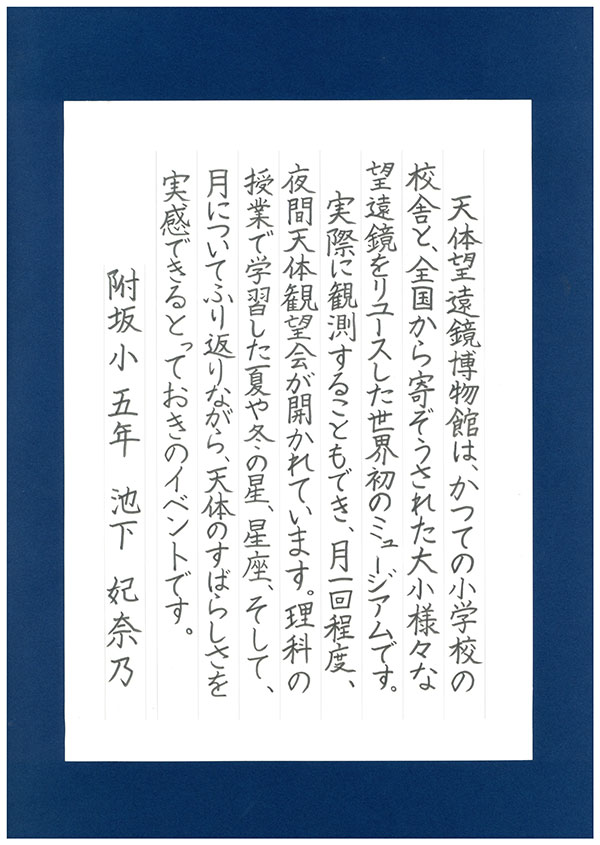 天体望遠鏡博物館は、かつての小学校の
校舎と、全国から寄ぞうされた大小様々な
望遠鏡をリユースした世界初のミュージアムです。
実際に観測することもでき、月一回程度、
夜間天体観望会が開かれています。理科の
授業で学習した夏や冬の星、星座、そして、
月についてふり返りながら、天体のすばらしさを
実感できるとっておきのイベントです。
附坂小 五年 池下 妃奈乃